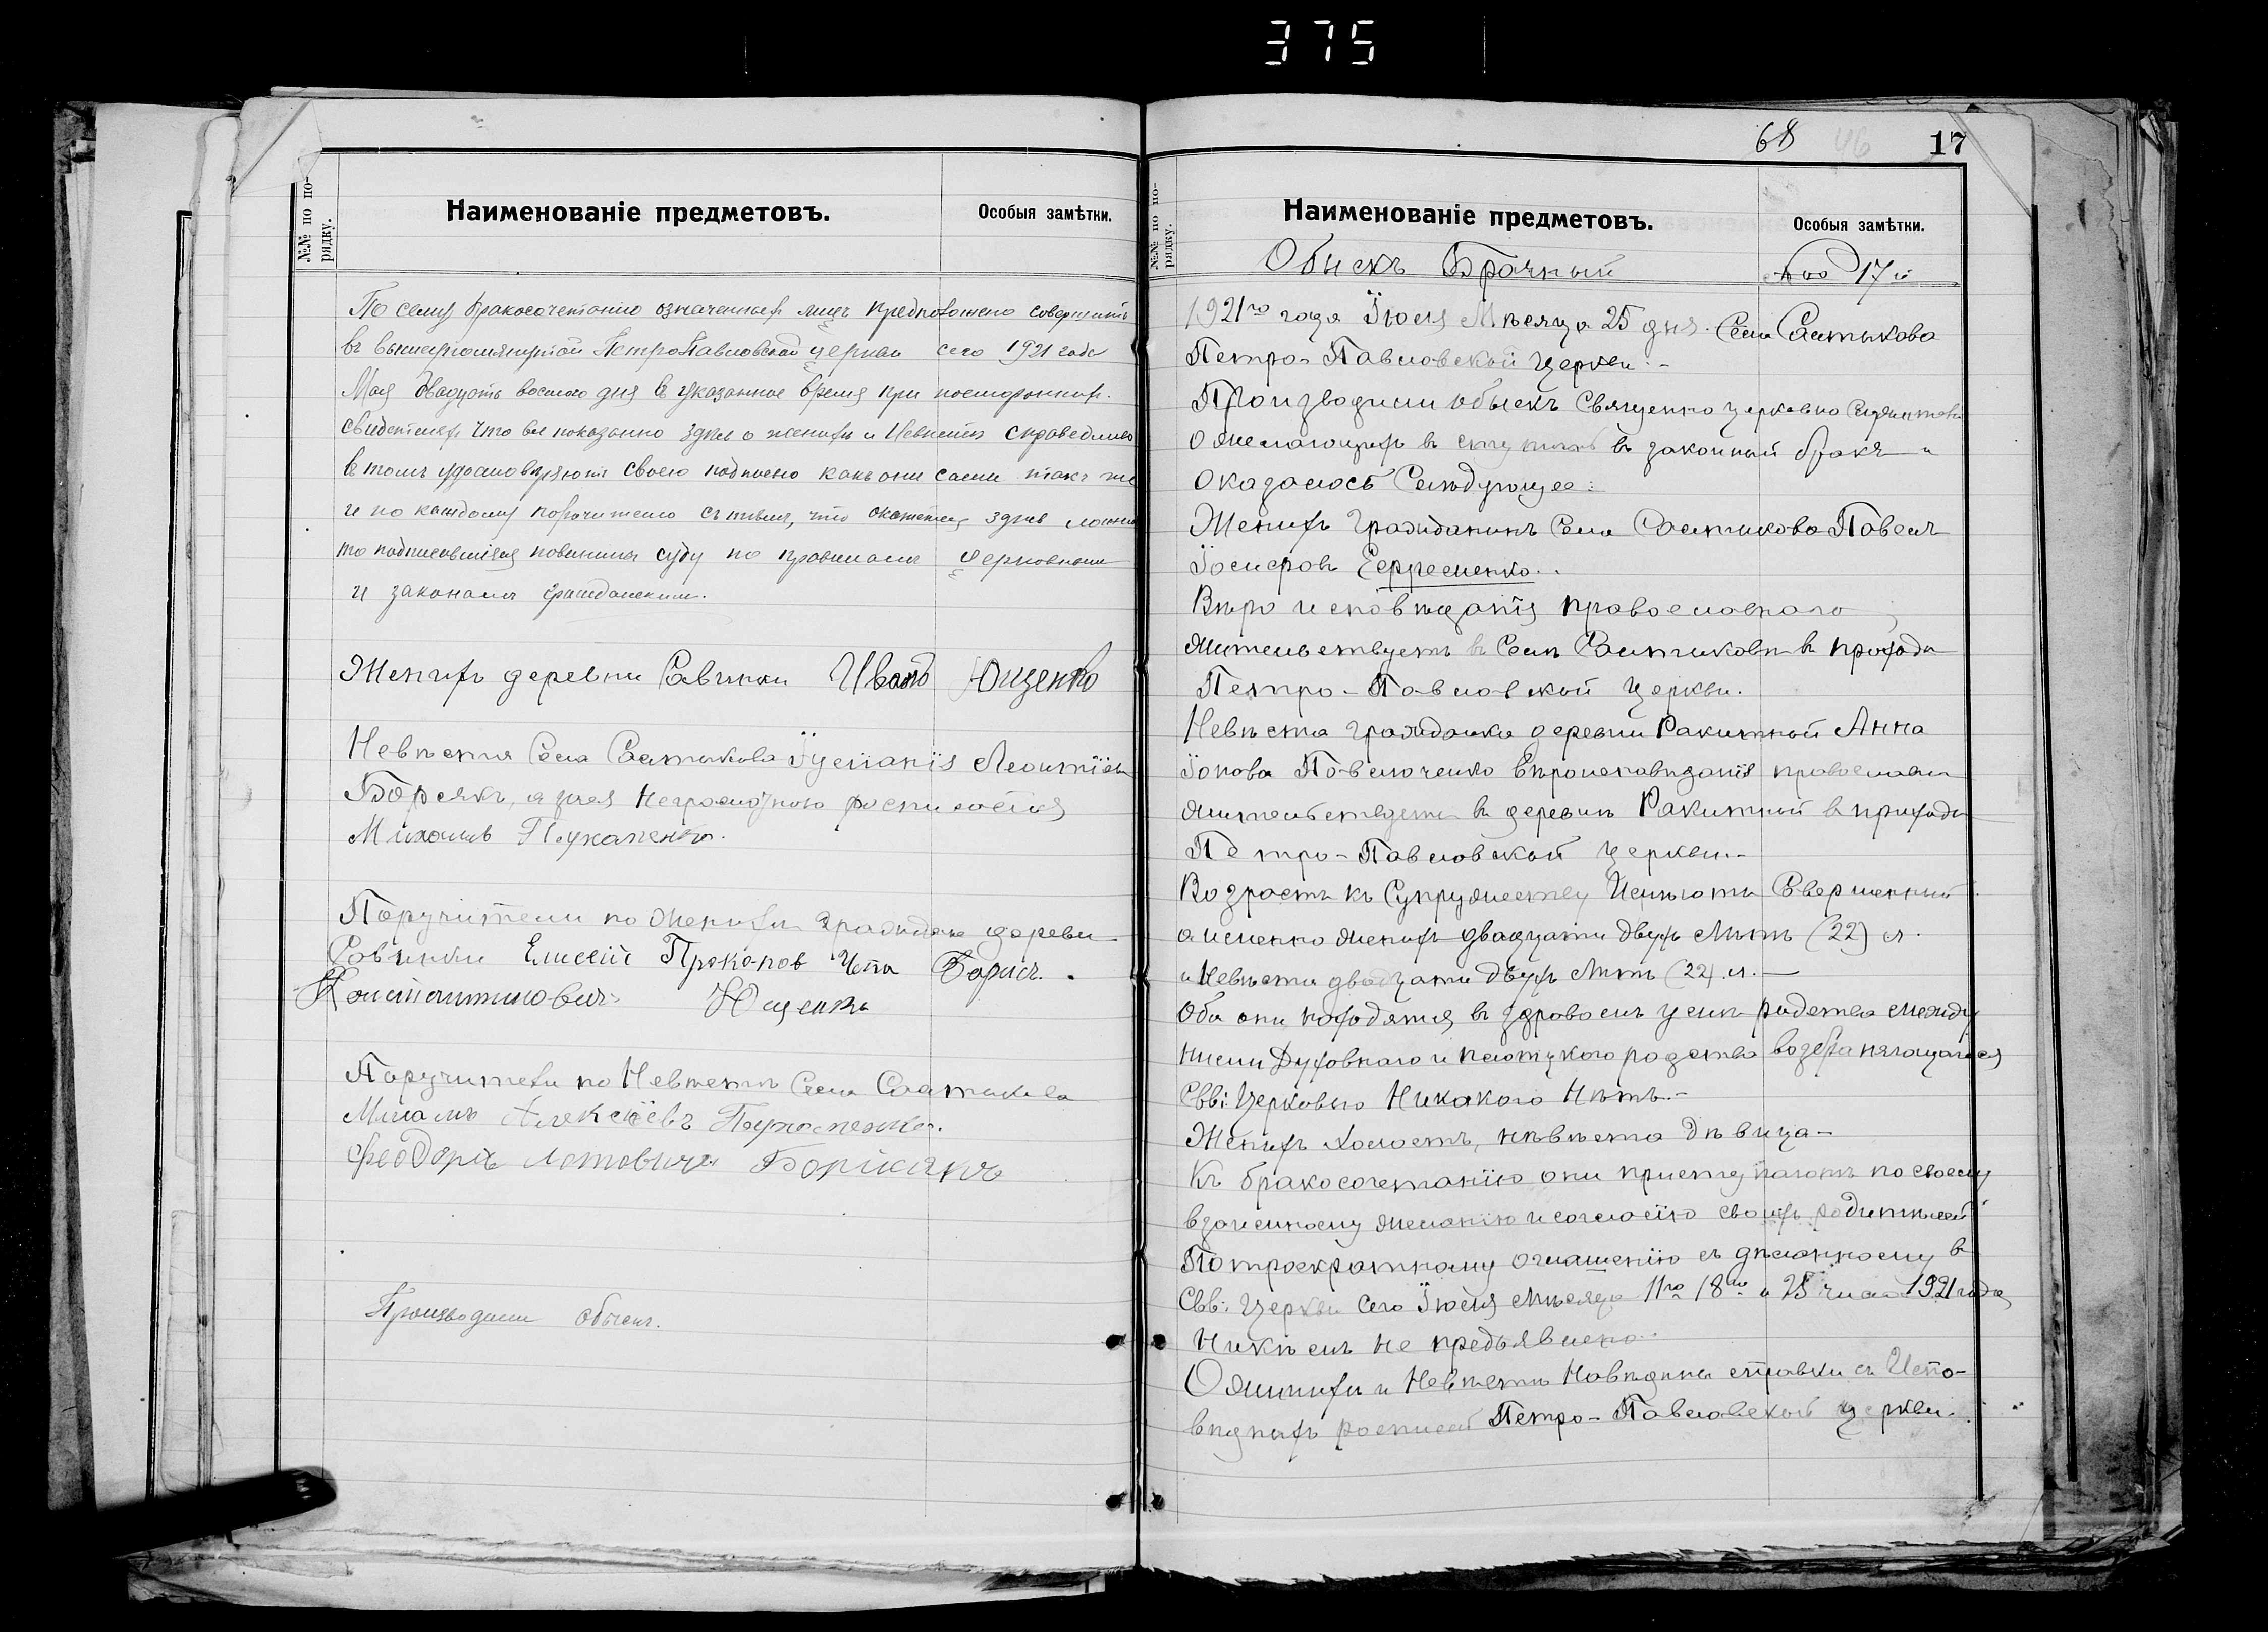 375
№№ по по-
рядку.
Наименованіе предметовъ.
Особыя замѣтки.
По сему бракосочетанію означенныхъ лицъ предположено совершить
въ вышеупомянутой ПетроПавловской церкви сего 1921 года
Мая двадцать восьмого дня в указанное время при постороннихъ
свидетелехъ что вся показанно здѣсь о женихѣ и невѣсте справедливо
въ томъ удостовѣряютъ своею подписею какъ они сами такъ же
и по каждому поручителю съ тѣмъ, что окажется здѣсь ложно
то подписавшіяся повинны суду по правиламъ церковнымъ
и законамъ гражданскимъ.
Женихъ деревни Савинки Иванъ Ющенко
Невѣста Села Салтыкова Іуліанія Леонтіева
Борсякъ, а зане неграмотною росписался
Михаилъ Пухаленко.
Поручители по женихѣ граждане деревни
Савинки Елисей Прокопов Борисъ
Константиновичъ Ющенко
Поручители по Невѣстѣ Села Салтикова
Михаилъ Алексіевъ Пухаленко.
Феодоръ Борсякъ
Производили обыскъ.
68 46 17
№№ по по-
рядку.
Наименованіе предметовъ.
Особыя замѣтки.
Обыскъ Брачный 17й
1921го года Іюля Мѣсяца 25 дня. Села Салтыкова
Петро-Павловской Церкви.-
Производили обыскъ Священно церковно Служители
о желающихъ вступить въ законный бракъ и
оказалось Слѣдующее:
Женихъ Гражданинъ Села Салтикова Павелъ
Іосифовъ Ефременко..
Вѣроисповѣданія православнаго
жительствуетъ въ Селѣ Салтиковѣ въ приходѣ
Петро-Павловской Церкви.
Невѣста гражданка деревни Ракитной Анна
Іонова Павлюченко Вѣроисповѣданія православн
жительствуетъ въ деревнѣ Ракитной в приходѣ
Петро-Павловской Церкви.-
Возрастъ къ Супружеству Имѣютъ Совершенный
а именно женихъ двадцати двухъ лѣтъ (22) л.
и Невѣста двадцати двухъ лѣтъ (22) л.—
Оба они находятся въ здравомъ умѣ родства между
ними Духовнаго и плотского родства возбраняющагося
Свв: Церковью Никакого Нѣтъ.-
Женихъ холостъ, невѣста дѣвица-
Къ бракосочетанію они приступаютъ по своему
взаимному желанію и согласію своихъ родителей
По троекратному оглашенію сдѣланному в
Свв: Церкви Сего Іюля мѣсяца 11го 18го и 25 числа 1921 года
никѣмъ не предъявлено.
О женихѣ и Невѣстѣ Наведены справки съ Испо-
вѣдныхъ росписей Петро-Павловской церкви.